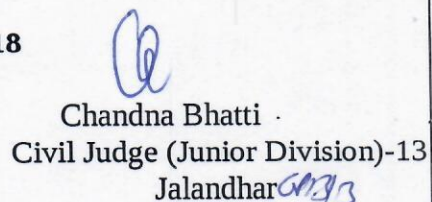 18
Chandna Bhatti
Civil Judge (Junior Division)-13
Jalandhar